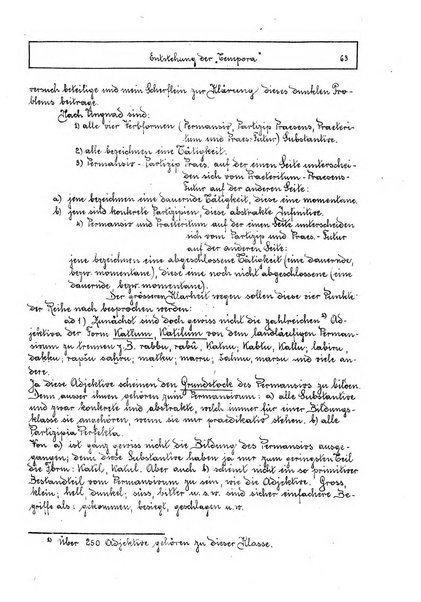 Entstehung der „Tempora“ 63
versuch beteilige und mein Scherflein zur Klärung dieses dunklen Pro-
blems beitrage.
Nach Ungnad sind:
1) alle vier Verbformen (Permansiv, Partizip Praesens, Praeteri-
tum und Praes.-Futur) Substantive.
2) alle bezeichnen eine Tätigkeit.
3) Permansiv - Partizip Praes. auf der einen Seite unterschei-
den sich vom Praeteritum - Praesens-
Futur auf der anderen Seite:
a) jene bezeichnen eine dauernde Tätigkeit, diese eine momentane.
b) jene sind konkrete Partizipien, diese abstrakte Infinitive.
4) Permansiv und Praeteritum auf der einen Seite unterscheiden
sich vom Partizip und Praes.-Futur
auf der anderen Seite:
jene bezeichnen eine abgeschlossene Tätigkeit (eine dauernde,
bezw. momentane), diese eine noch nicht abgeschlossene (eine
dauernde bezw. momentane).
Der grösseren Klarheit wegen sollen diese vier Punkte
der Reihe nach besprochen werden:
ad 1) Zunächst sind doch gewiss nicht die zahlreichen ¹) Ad-
jektiva der Form Katlum, Katilum von dem landläufigen Perman-
sivum zu trennen z.B. rabbu, rabû, Katnu, Kabtu, Kallu, labiru,
dakku; rapšu sahru; matku; marru; salmu, marsu und viele an-
dere.
Ja diese Adjektive scheinen den Grundstock des Permansivs zu bilden.
Denn ausser ihnen gehören zum Permansivum: a) alle Substantive
und zwar konkrete und abstrakte, welch immer für einer Bildungs-
klasse sie angehören, wenn sie nur praedikativ stehen. b) alle
Partizipia Perfekta.
Von a) ist ganz gewiss nicht die Bildung des Permansivs ausge-
gangen; denn diese Substantive haben ja nur zum geringsten Teil
die Form: Katil, Katul. Aber auch b) scheint nicht ein so primitiver
Bestandteil vom Permansivum zu sein, wie die Adjektive. Gross,
klein; hell, dunkel; süss, bitter u.s.w. sind sicher einfachere Be-
griffe als: gekommen, besiegt, geschlagen u.w.
¹) Über 250 Adjektive gehören zu dieser Klasse.